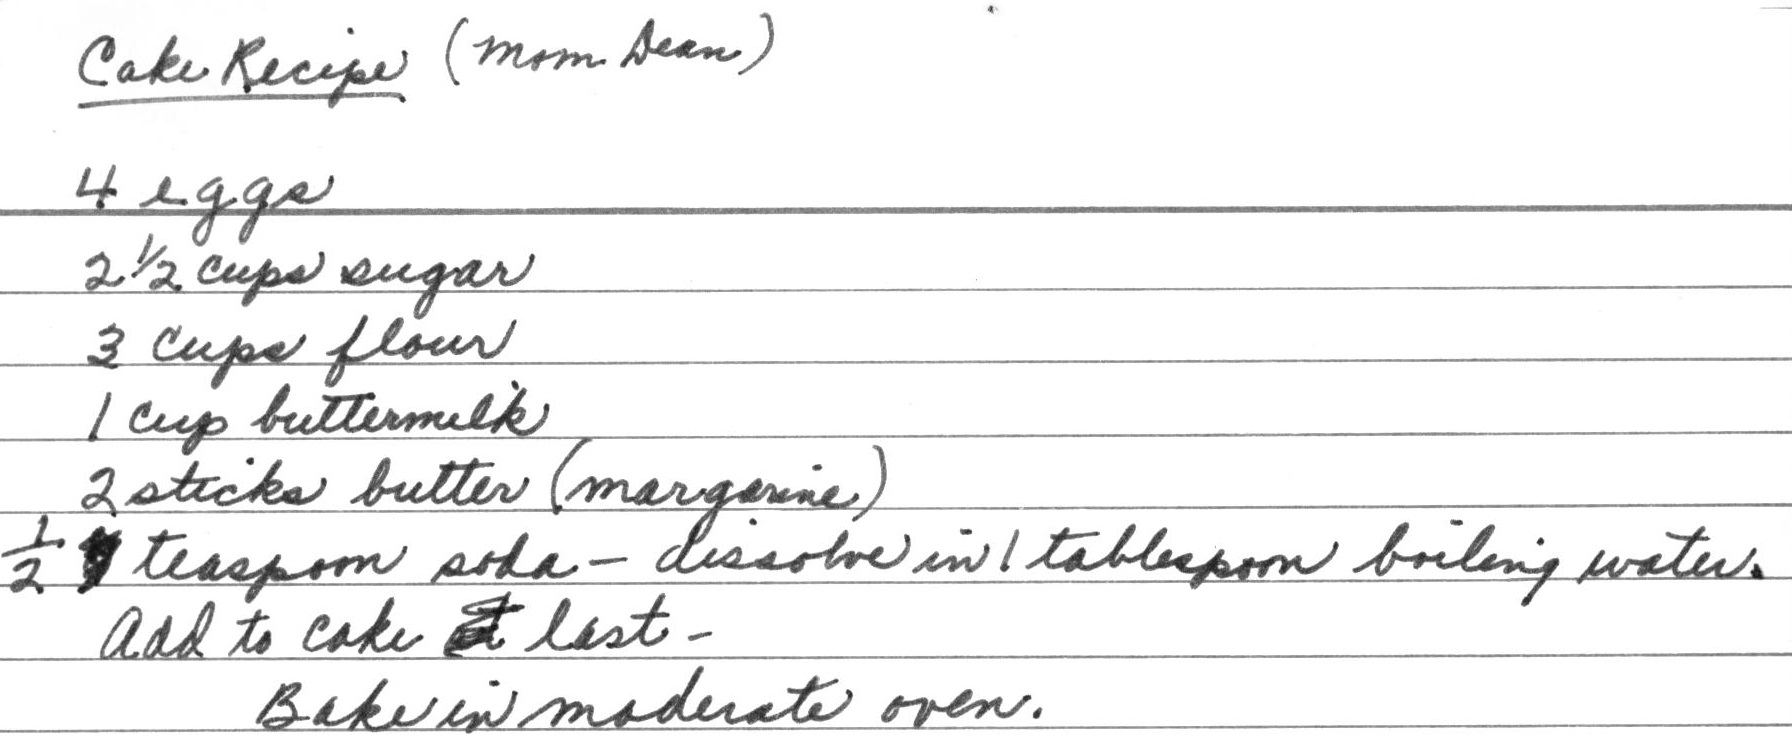 Cake Recipe (Mom Dean)
4 eggs
2 1/2 cups sugar
3 cups flour
1 cup buttermilk
2 sticks butter (margarine)
1/2 teaspoon soda - dissolve in 1 tablespoon boiling water.
Add to cake last -
Bake in moderate oven.